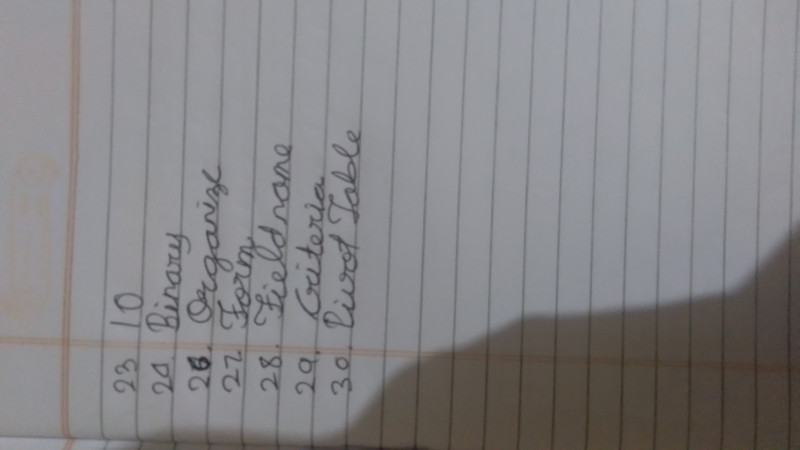 23. 10
24. Binary
26. Organize
27. Form
28. Fieldname
29. Criteria
30. Pivot Table